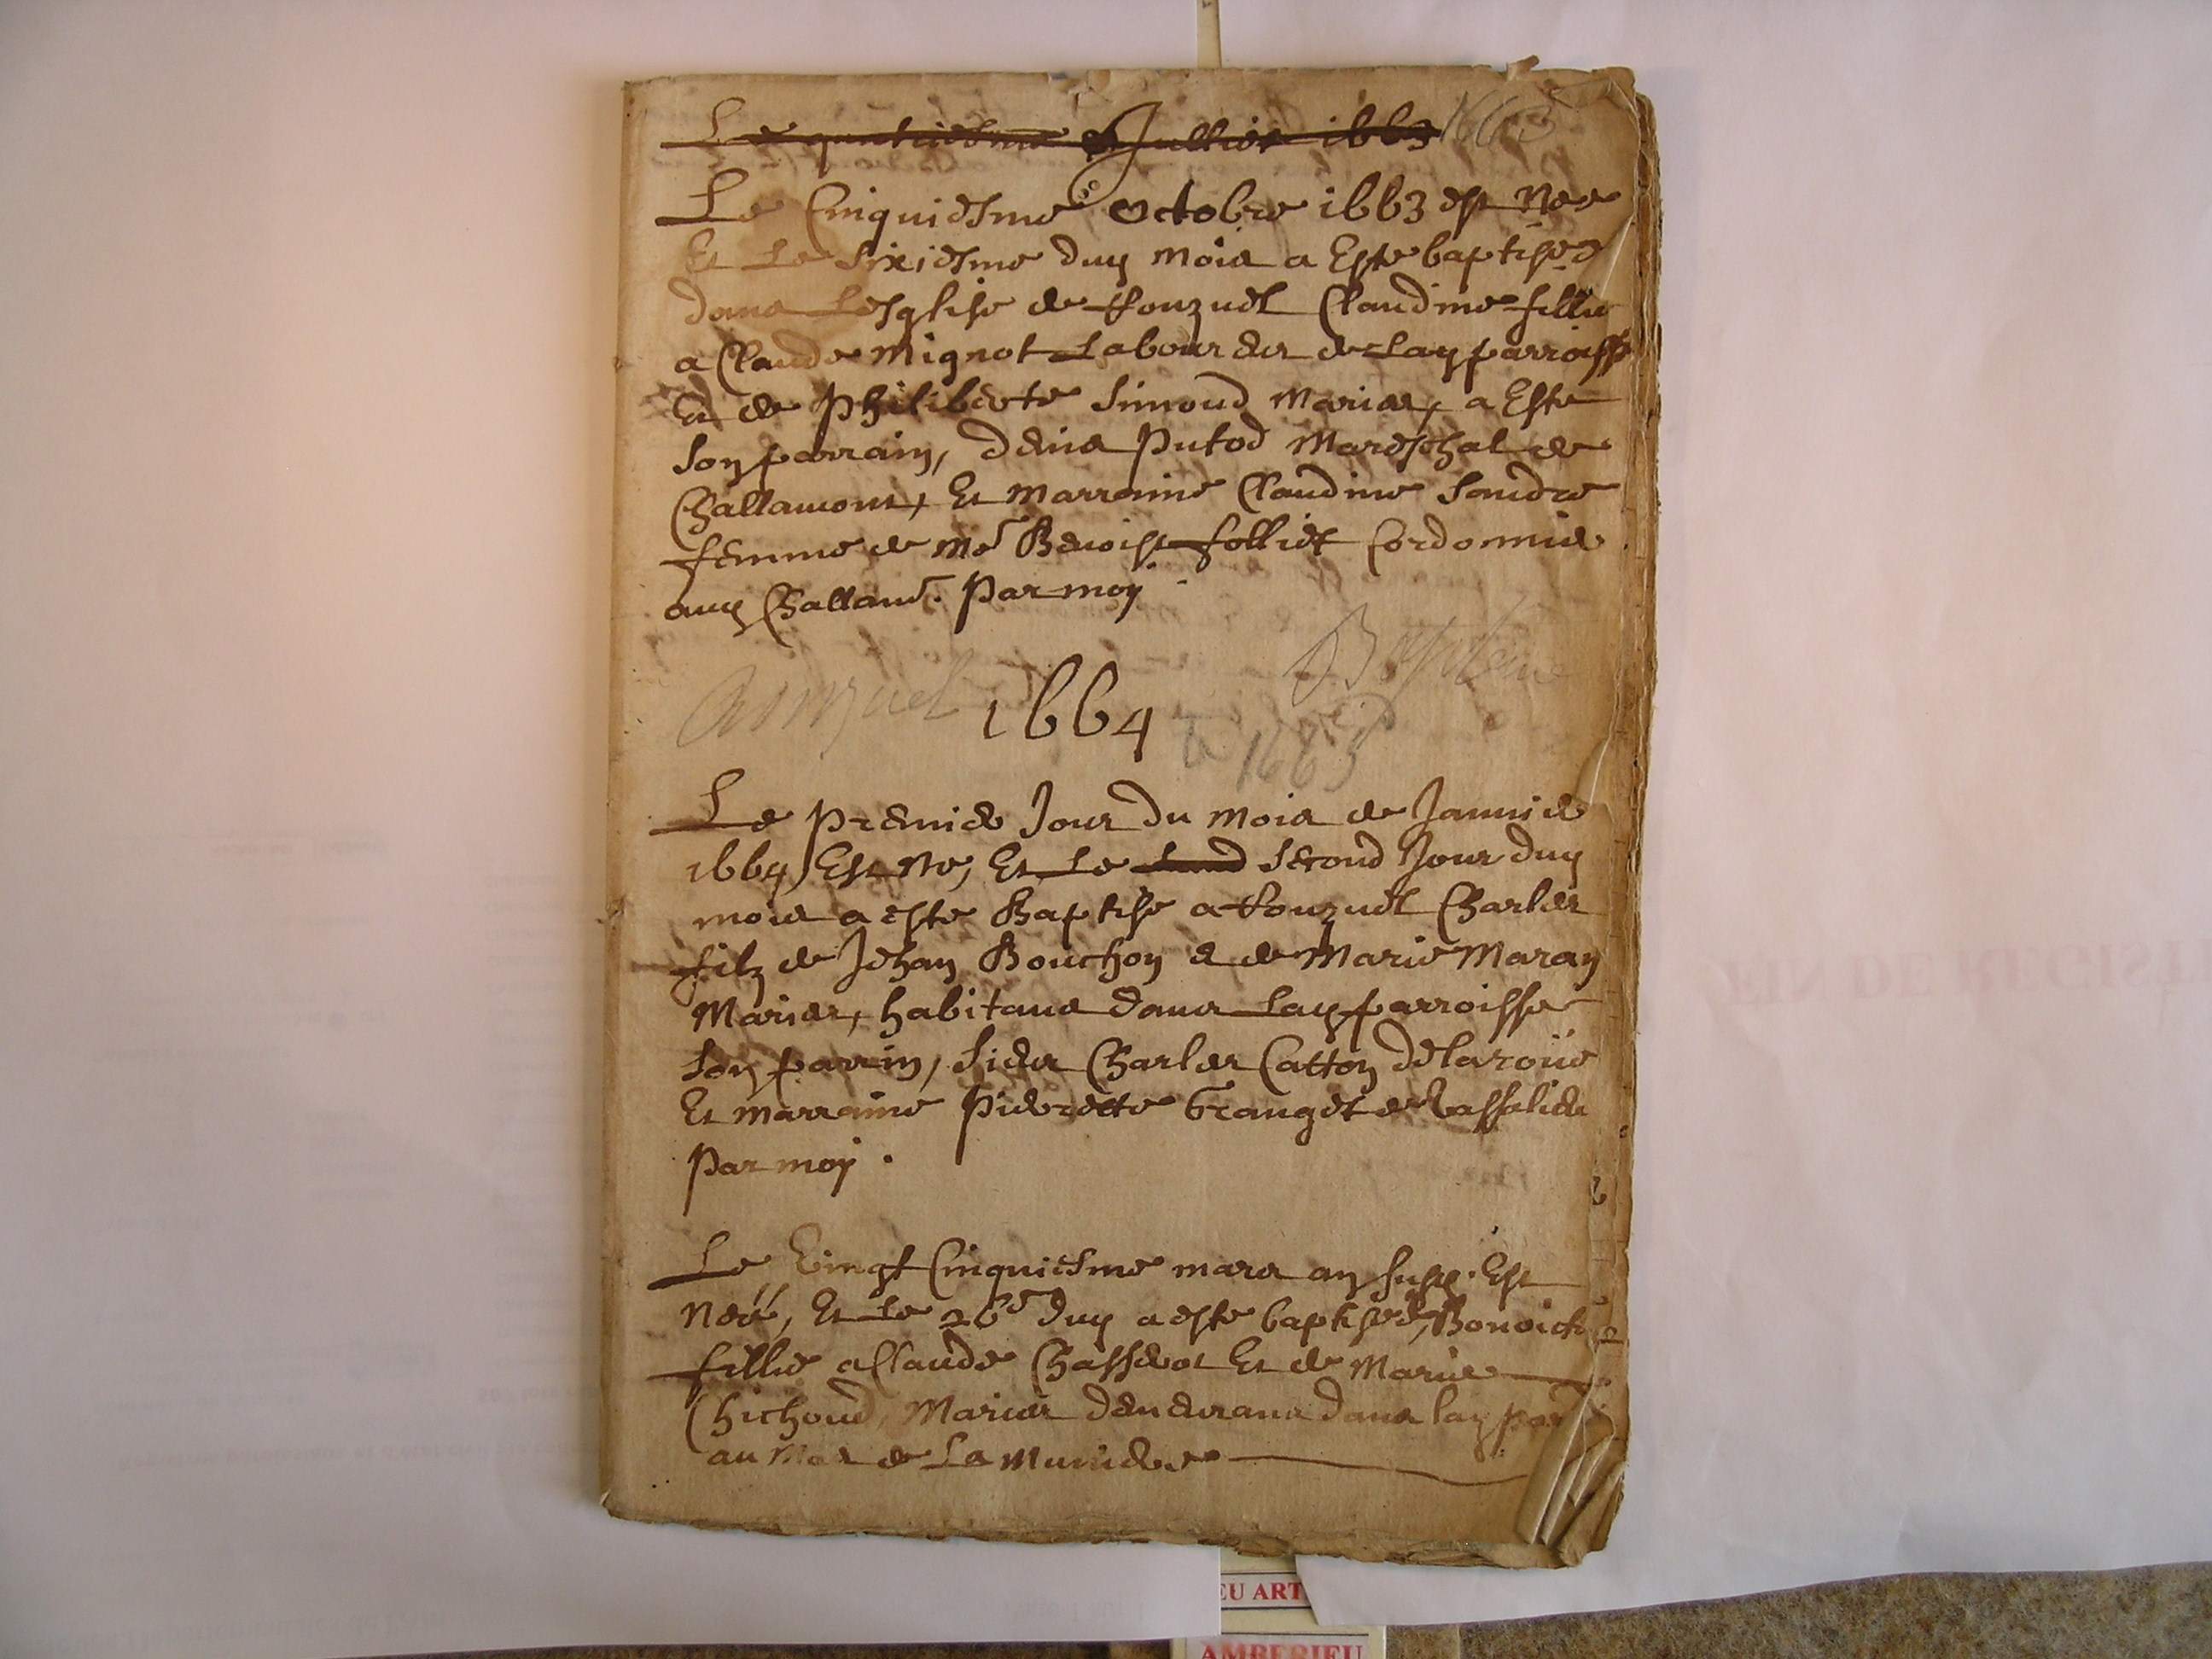 Le quatriesme Julliet 1663 1663
Le Cinquiesme Octobre 1663 est Nee
Et Le sixiesme duy mois a Este baptisee
dans Lesglise de Ronzuel Claudine fillie
a Claude Mignot Laboureur de Lay parroisse
Et de Philiberte Simoud Maries, a Este
Son parrain, Denis Putod Mareschal de
Challamont, Et Marraine Claudine
femme de Me Benoist folliet Cordonnier
auy Challamt. Par moy
Ronzuel 1664 Baptême
a 1683
Le Premier Jour du mois de Janvier
1664 Est Ne, Et Le Second Jour duy
mois a este Baptise a Ronzuel Charles
filz de Jehan Bouchon & de Marie Maray
Maries, habitans dans Lay parroisse
Son parrin, Sieur Charles Catton delaroüe
Et marraine Pierrette Granget de
Par moy.
Le Vingt Cinquiesme mars an susd. Est
Neé, Et Le 26e duy a este baptisée, Benoiste
fillie a Claude Et de Marie
Chichoud, Maries demeurans dans lay parr
au Mas de La Muniere
EU ART
AMBERIEU